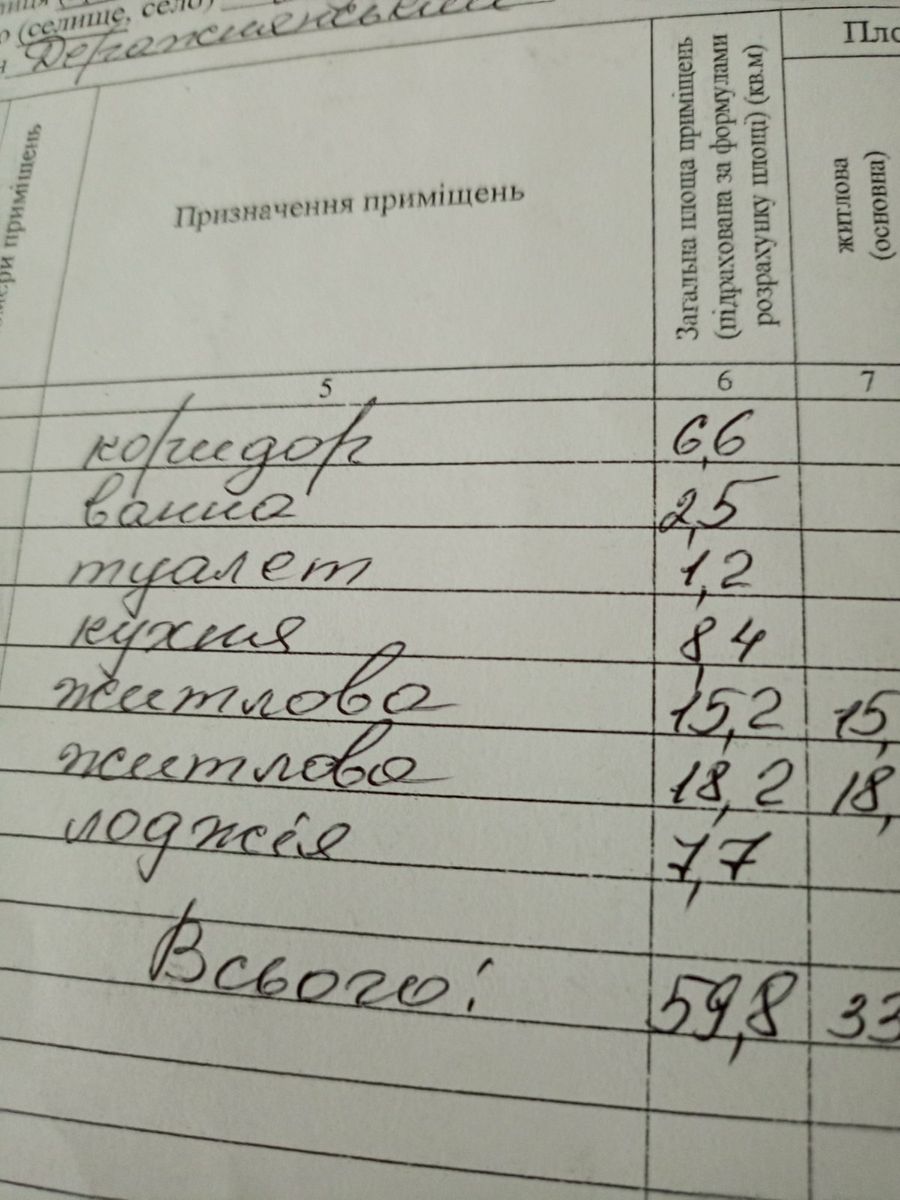 (селище, село)
Деражнянський
Призначення приміщень
Загальна площа приміщень
(підрахована за формулами
розрахунку площі) (кв.м)
житлова
(основна)
5 6 7
коридор 6,6
ванна 2,5
туалет 1,2
кухня 8,4
житлова 15,2 15,
житлова 18,2 18,
лоджія 7,7
Всього: 59,8 33